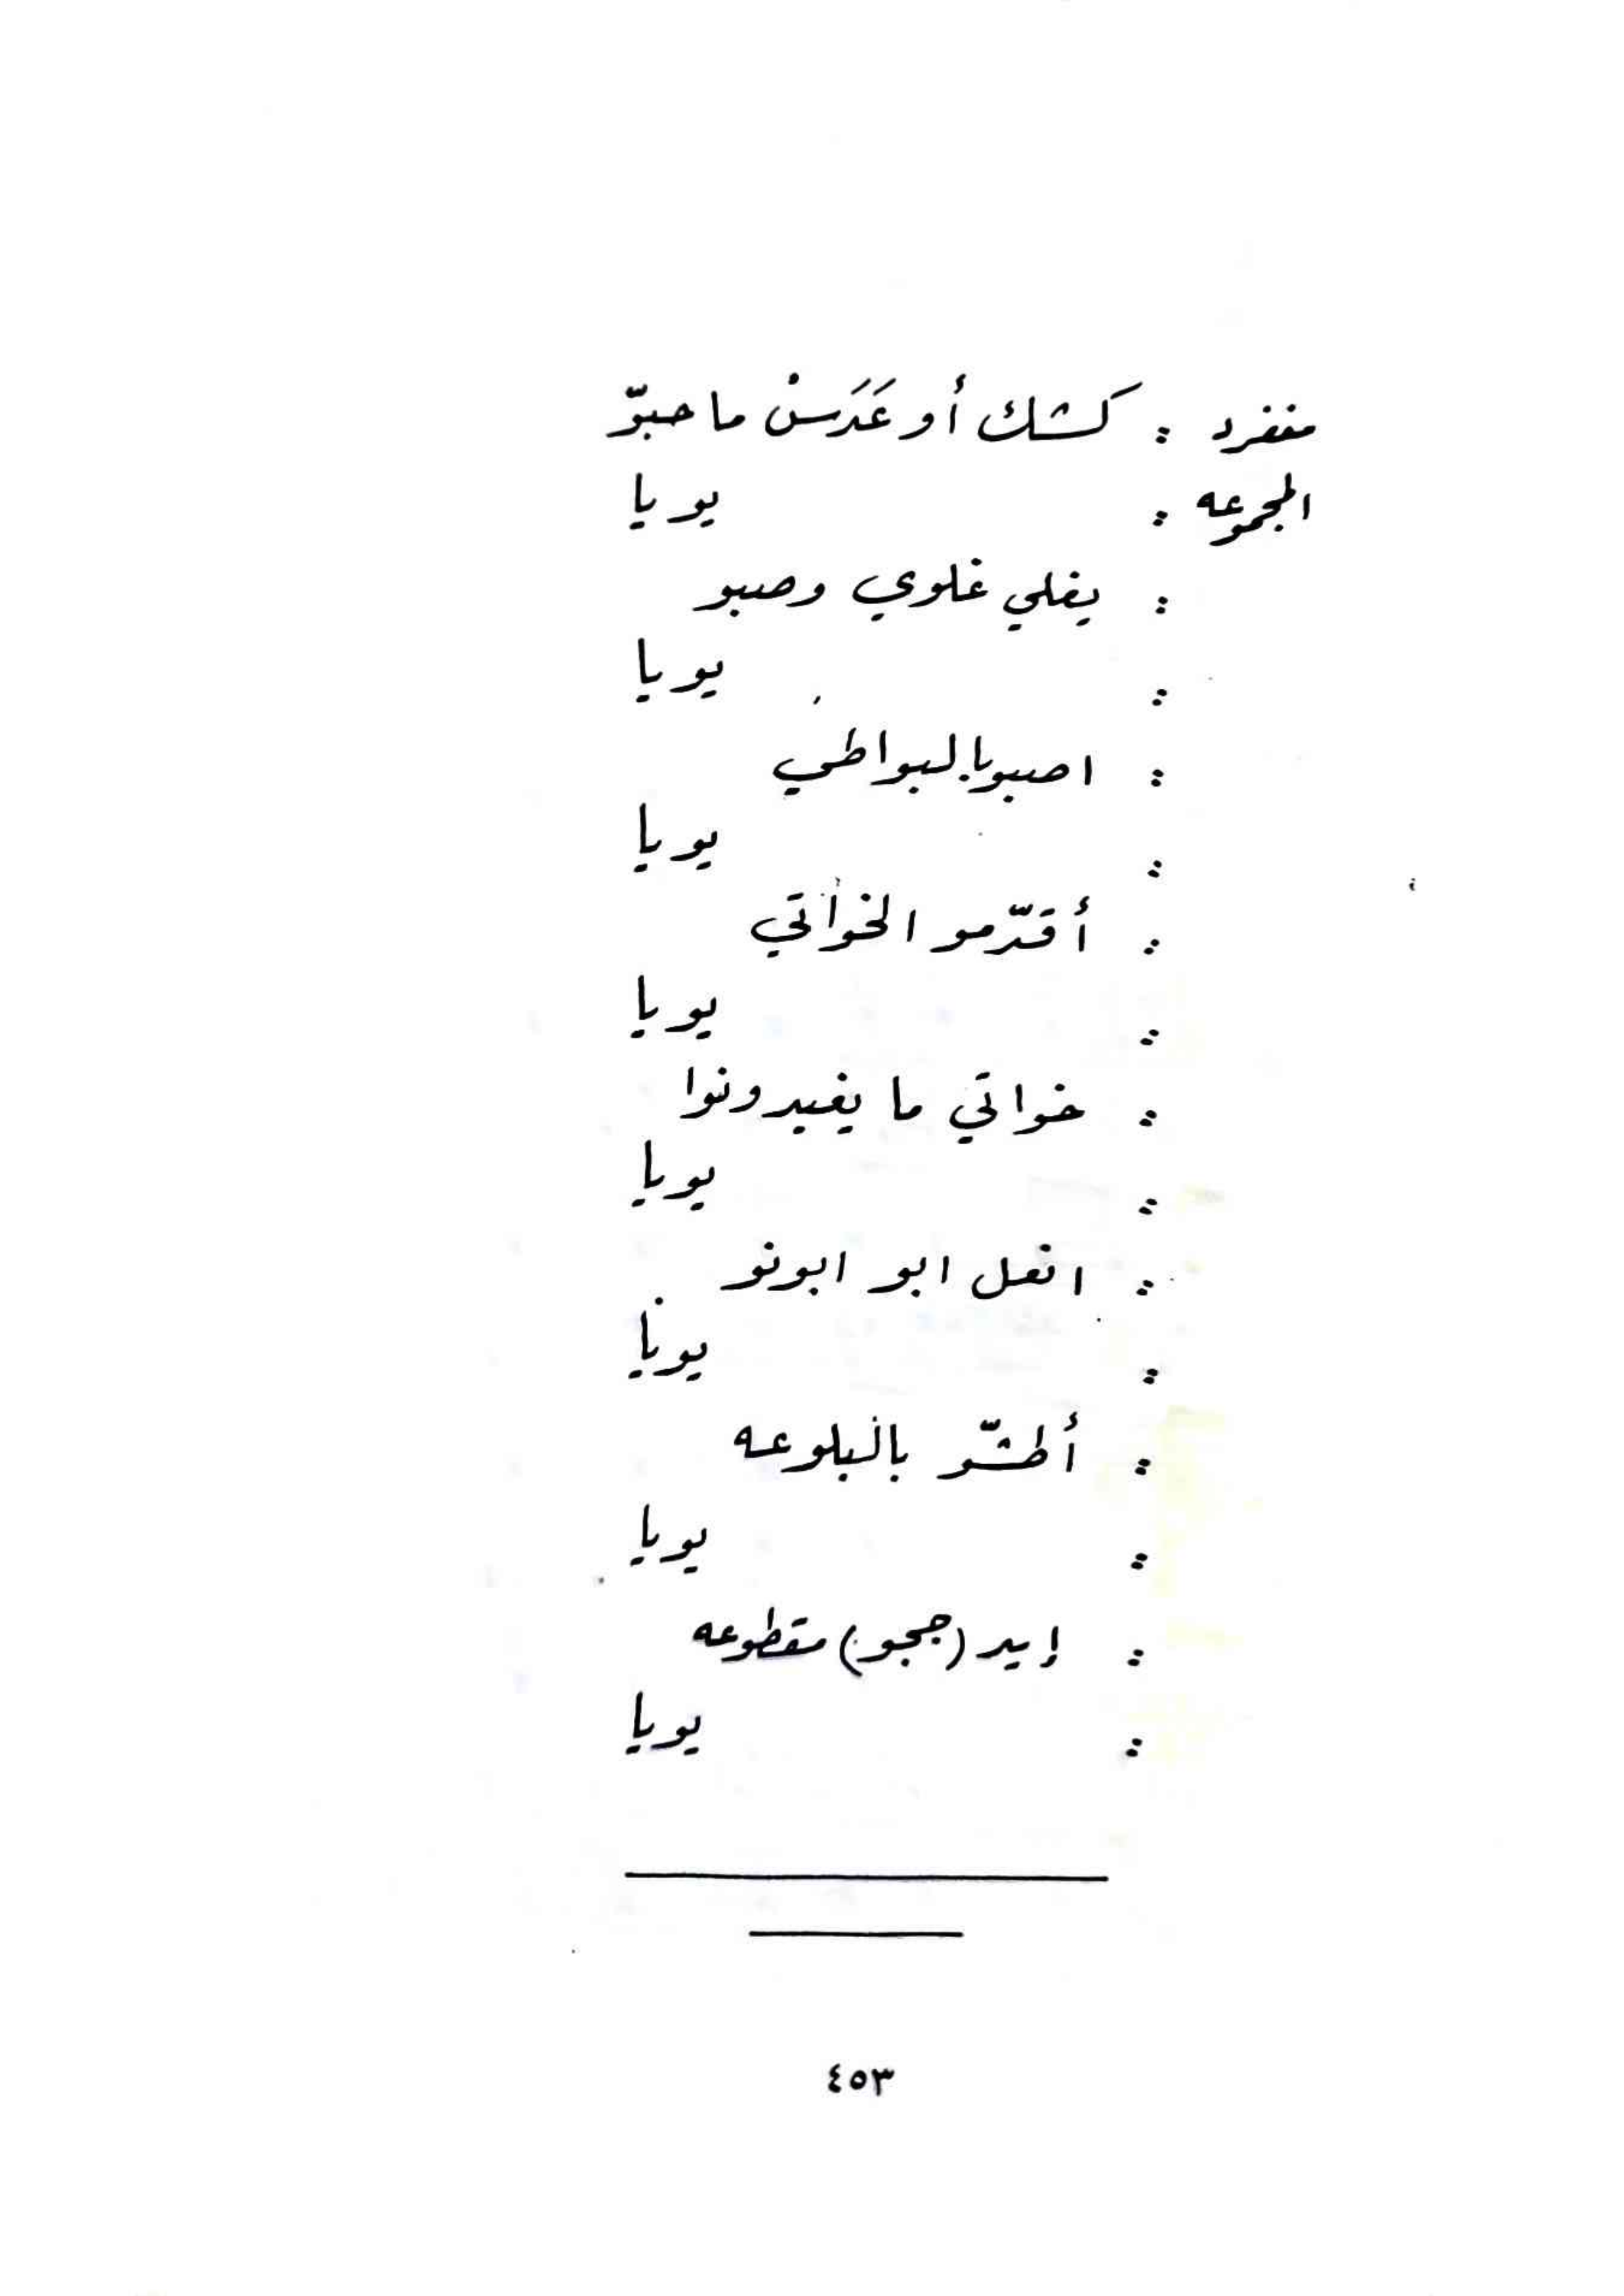 منفرد : كشك أو عَدَسْ ما حبوّ
المجموعه : يويا
: يغلي غلوي وصبو
: يويا
: اصبو بالبواطي
: يويا
: أقدّمو الخواتي
: يويا
: خواتي ما يغيدونوا
: يويا
: انعل ابو ابونو
: يويا
: أطشّو بالبلوعه
: يويا
: إيد (ججو) مقطوعه
: يويا
٤٥٣